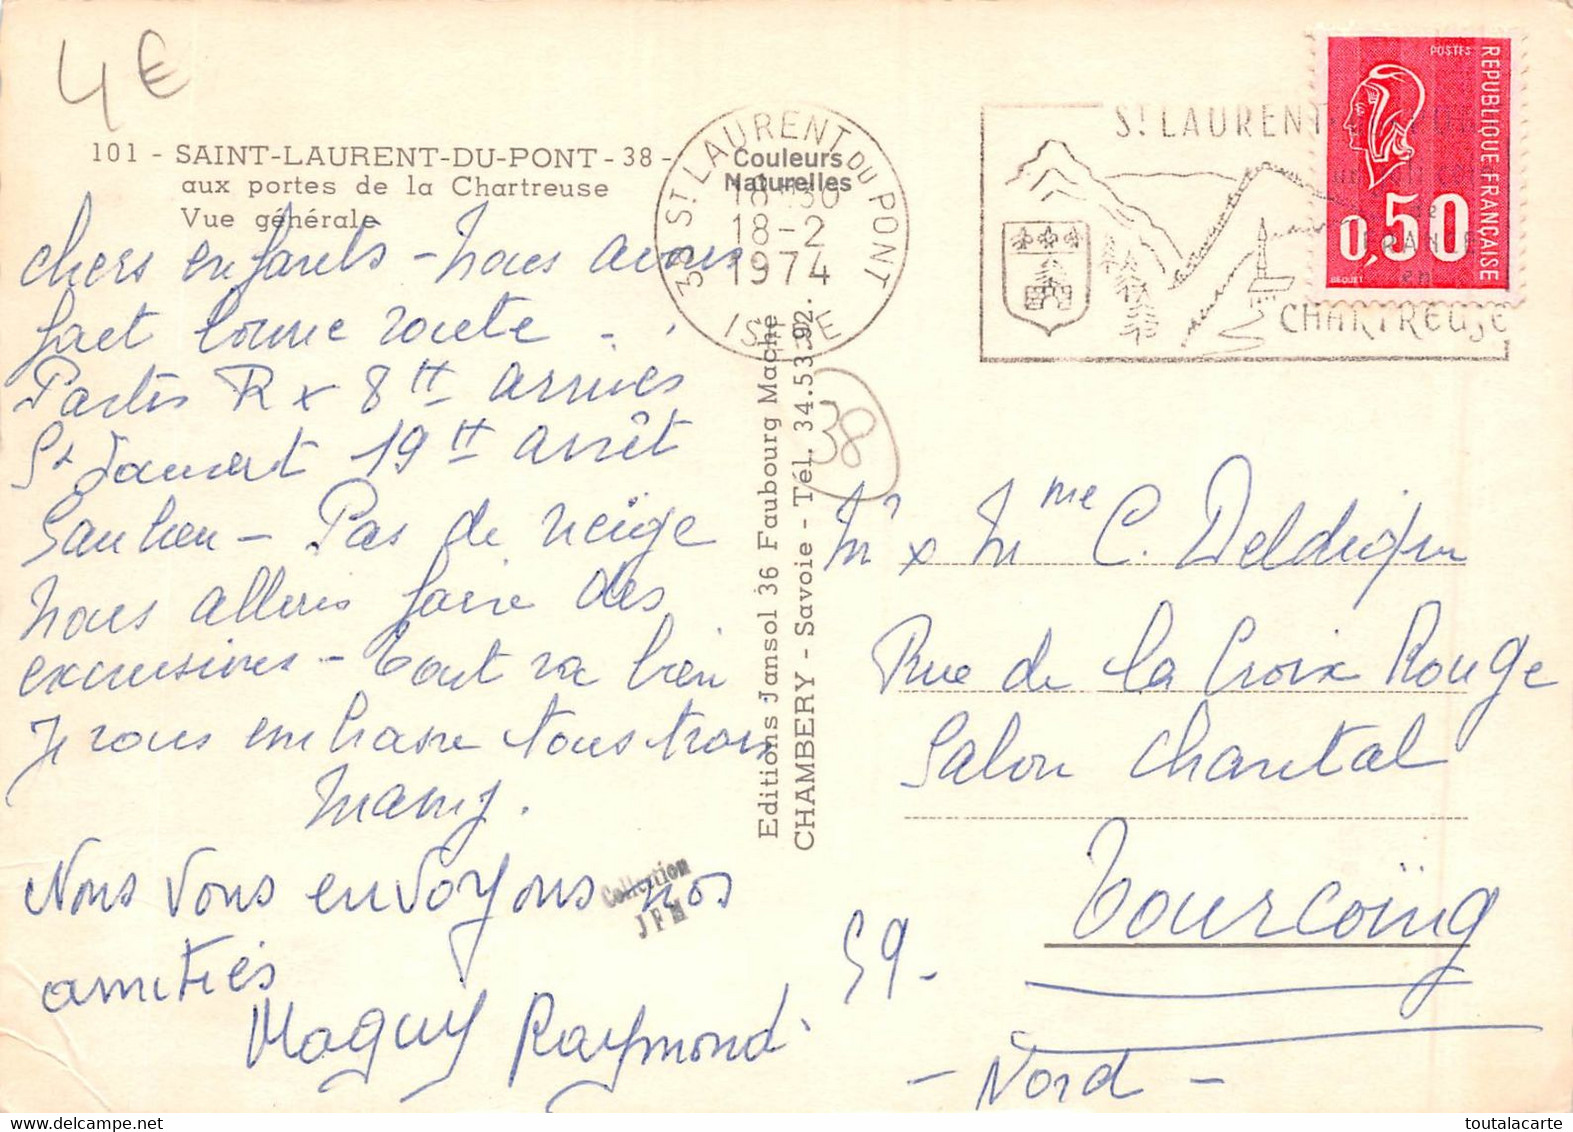 4€
101 - SAINT-LAURENT-DU-PONT - 38 -
aux portes de la Chartreuse
Vue générale
Couleurs
Naturelles
38 ST LAURENT DU PONT
18-30
18-2
1974
ISERE
ST LAURENT
en
CHARTREUSE
POSTES
REPUBLIQUE FRANÇAISE
0,50
BEQUET
chers enfants - Nous avons
fait bonne route -
Partis Rx 8 H arrivés
St Laurent 19 H arrêt
Saulieu - Pas de neige
Nous allons faire des
excursions - Tout va bien
Je vous embrasse tous trois
Mamy.
Nous vous envoyons nos
amitiés
Maguy Raymond.
Collection
JPM
Editions Jansol 36 Faubourg Maché
CHAMBERY - Savoie - Tél. 34.53.92.
38
Mr x Mme C.
Rue de la Croix Rouge
Salon Chantal
59 -
Tourcoïng
- Nord -
toutalacarte